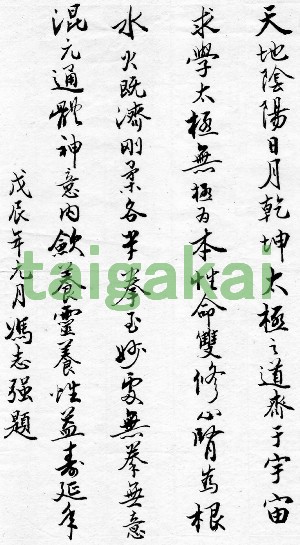 天地陰陽日月乾坤太極之道齊于宇宙
求學太極無極为本性命雙修心腎為根
水火既濟刚柔各半拳至妙處無拳無意
混元通體神意内歛養靈養性益壽延年
戊辰年元月馮志强題
taigakai